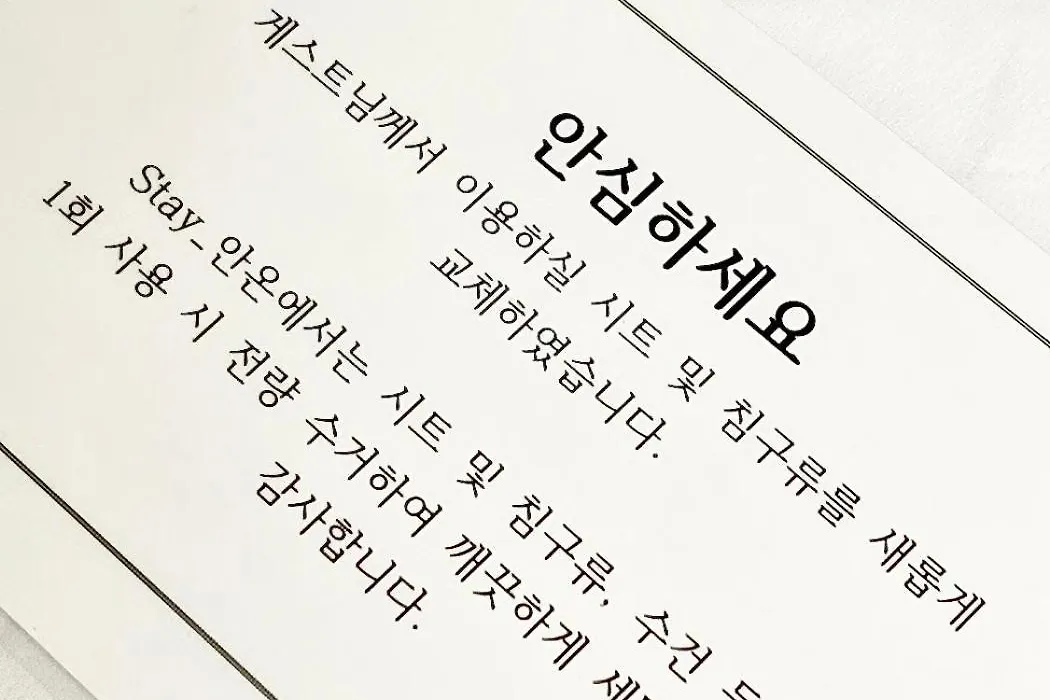 안심하세요
게스트님께서 이용하실 시트 및 침구류를 새롭게
교체하였습니다.
Stay_안온에서는 시트 및 침구류, 수건
1회 사용 시 전량 수거하여 깨끗하게
감사합니다.